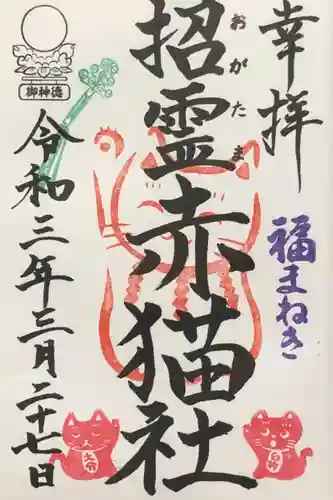 幸拝
福まねき
招霊赤猫社
おがたま
令和三年三月二十七日
御神徳